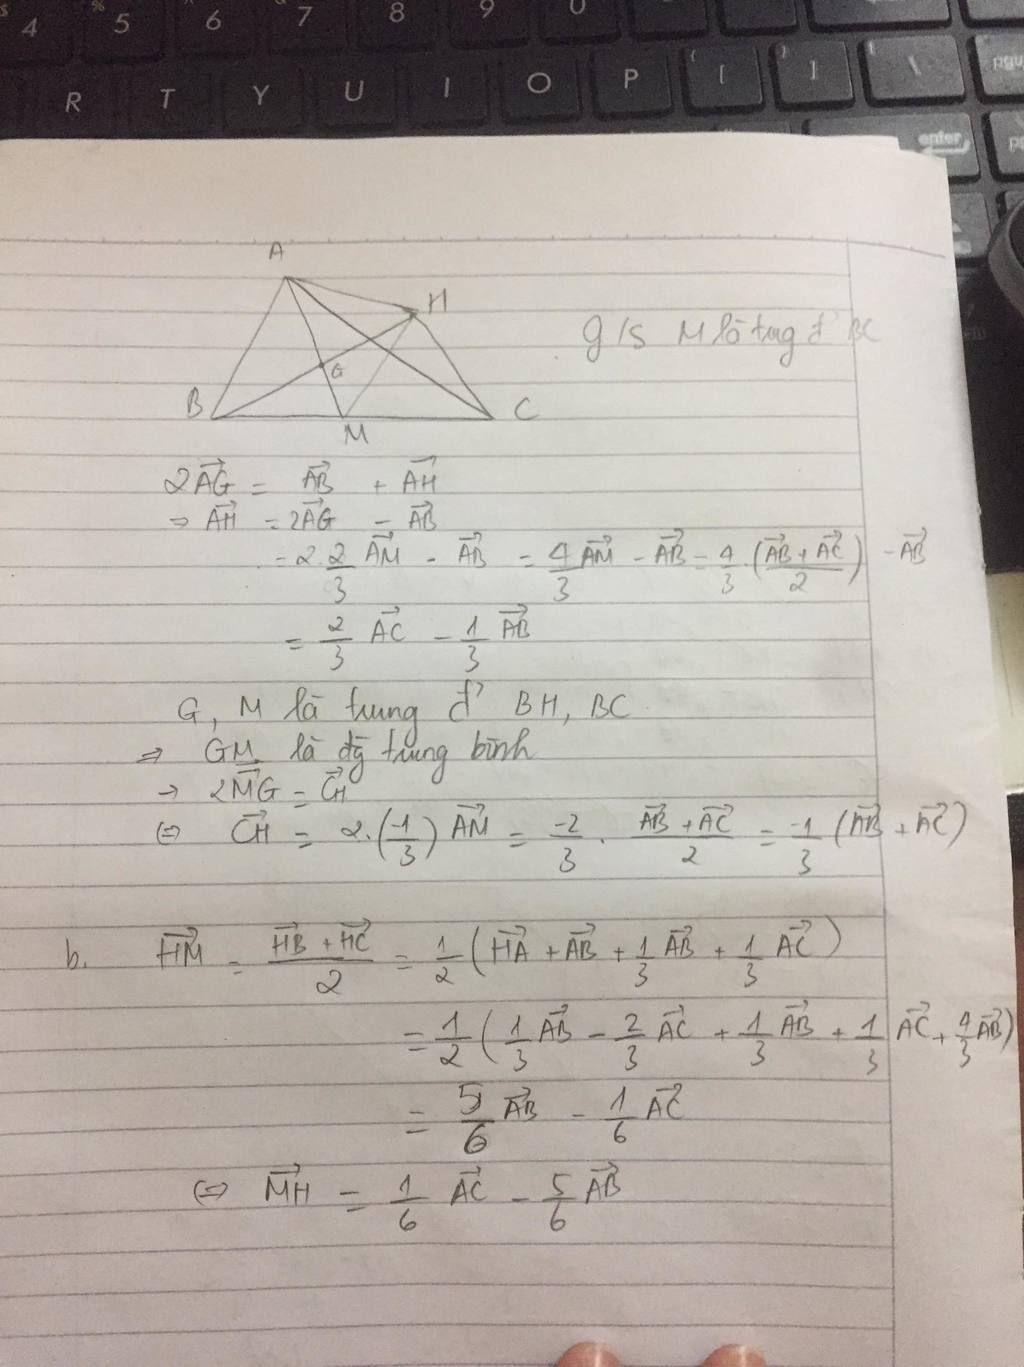 $ 4 % 5 6 7 8 9 0
R T Y U I O P { [ } ] \ pgu
enter
A
H
g/s M là tug đ' BC
G
B
C
M
2AG⃗ = AB⃗ + AH⃗
⇒ AH⃗ = 2AG⃗ - AB⃗
= 2.2/3 AM⃗ - AB⃗ = 4/3 AM⃗ - AB⃗ = 4/3 . (AB⃗ + AC⃗ / 2) - AB⃗
= 2/3 AC⃗ - 1/3 AB⃗
G, M là trung đ' BH, BC
⇒ GM là đg̃ trung bình
→ 2MG⃗ = CH⃗
⇔ CH⃗ = 2.(-1/3) AM⃗ = -2/3 . AB⃗ + AC⃗ / 2 = -1/3 (AB⃗ + AC⃗)
b. HM⃗ = HB⃗ + HC⃗ / 2 = 1/2 (HA⃗ + AB⃗ + 1/3 AB⃗ + 1/3 AC⃗)
= 1/2 (1/3 AB⃗ - 2/3 AC⃗ + 1/3 AB⃗ + 1/3 AC⃗ + 4/3 AB⃗)
= 5/6 AB⃗ - 1/6 AC⃗
⇔ MH⃗ = 1/6 AC⃗ - 5/6 AB⃗